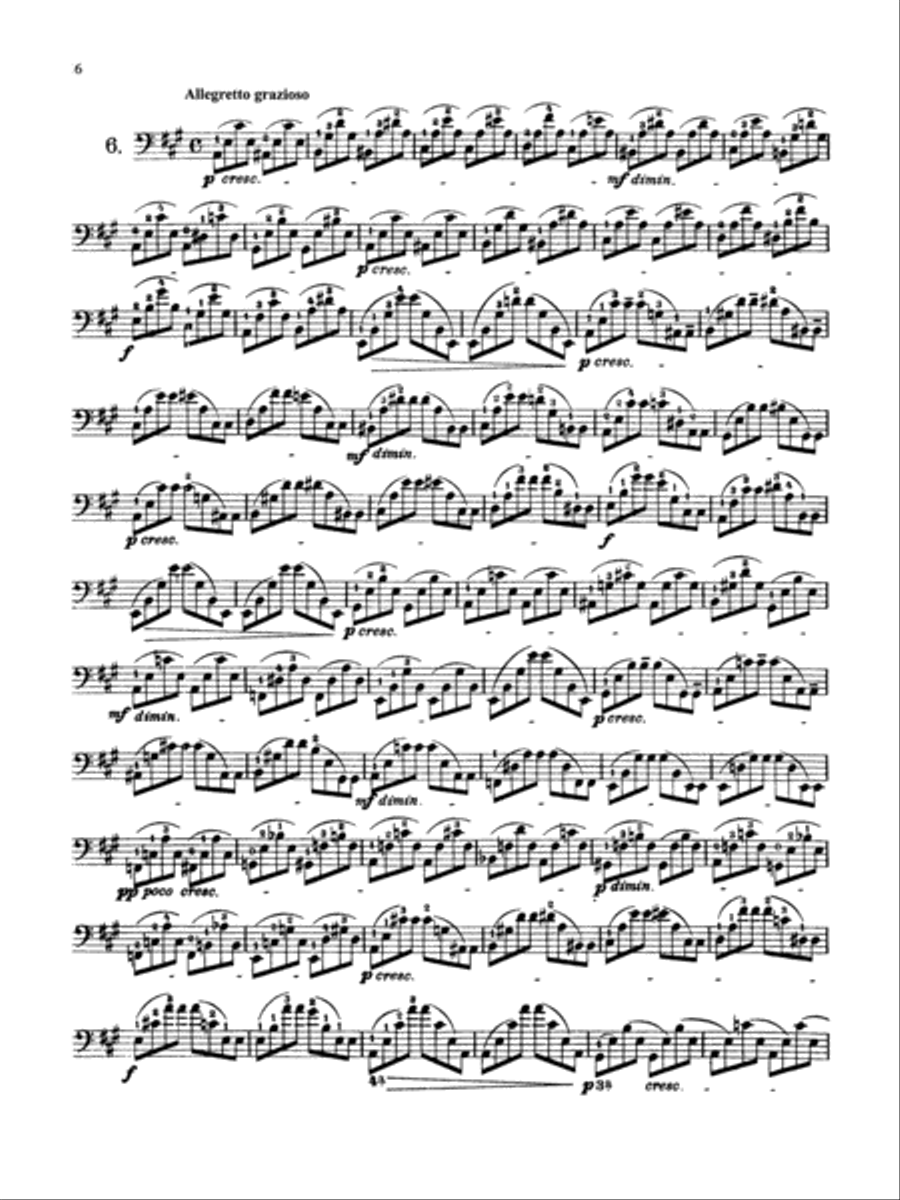 6
Allegretto grazioso
6.
p cresc. mf dimin.
p cresc.
f p cresc.
mf dimin.
p cresc. f
p cresc.
mf dimin. p cresc.
mf dimin.
pp poco cresc. p dimin.
p cresc.
f p cresc.